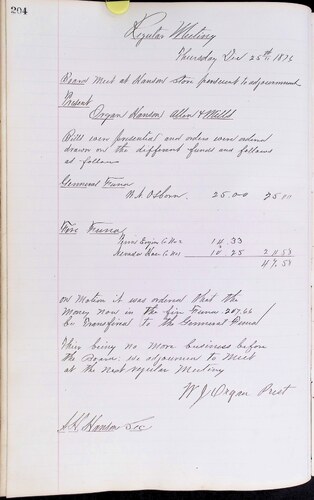 204
Regular Meeting
Thursday Dec 25th 1876
Board Meet at Hanson Store persuent to adjournment
Present
Organ Hanson Allen & Mills
Bills earn presented and orders earn ordered
drawn on the different funds and follows
as follows
General Fund
W. A. Osborn. 25.00 25 00
Fire Fund
Engin Co No 2 14.33
Nevada Hose Co No 1 10 25 24 53
49.53
on Motion it was ordered that the
Money now in the fire Fund 207.66
be Transferred to the General Fund
Their being no more business before
the Board. We adjourned to Meet
at the next regular Meeting
W J Organ Prest
Hanson Sec